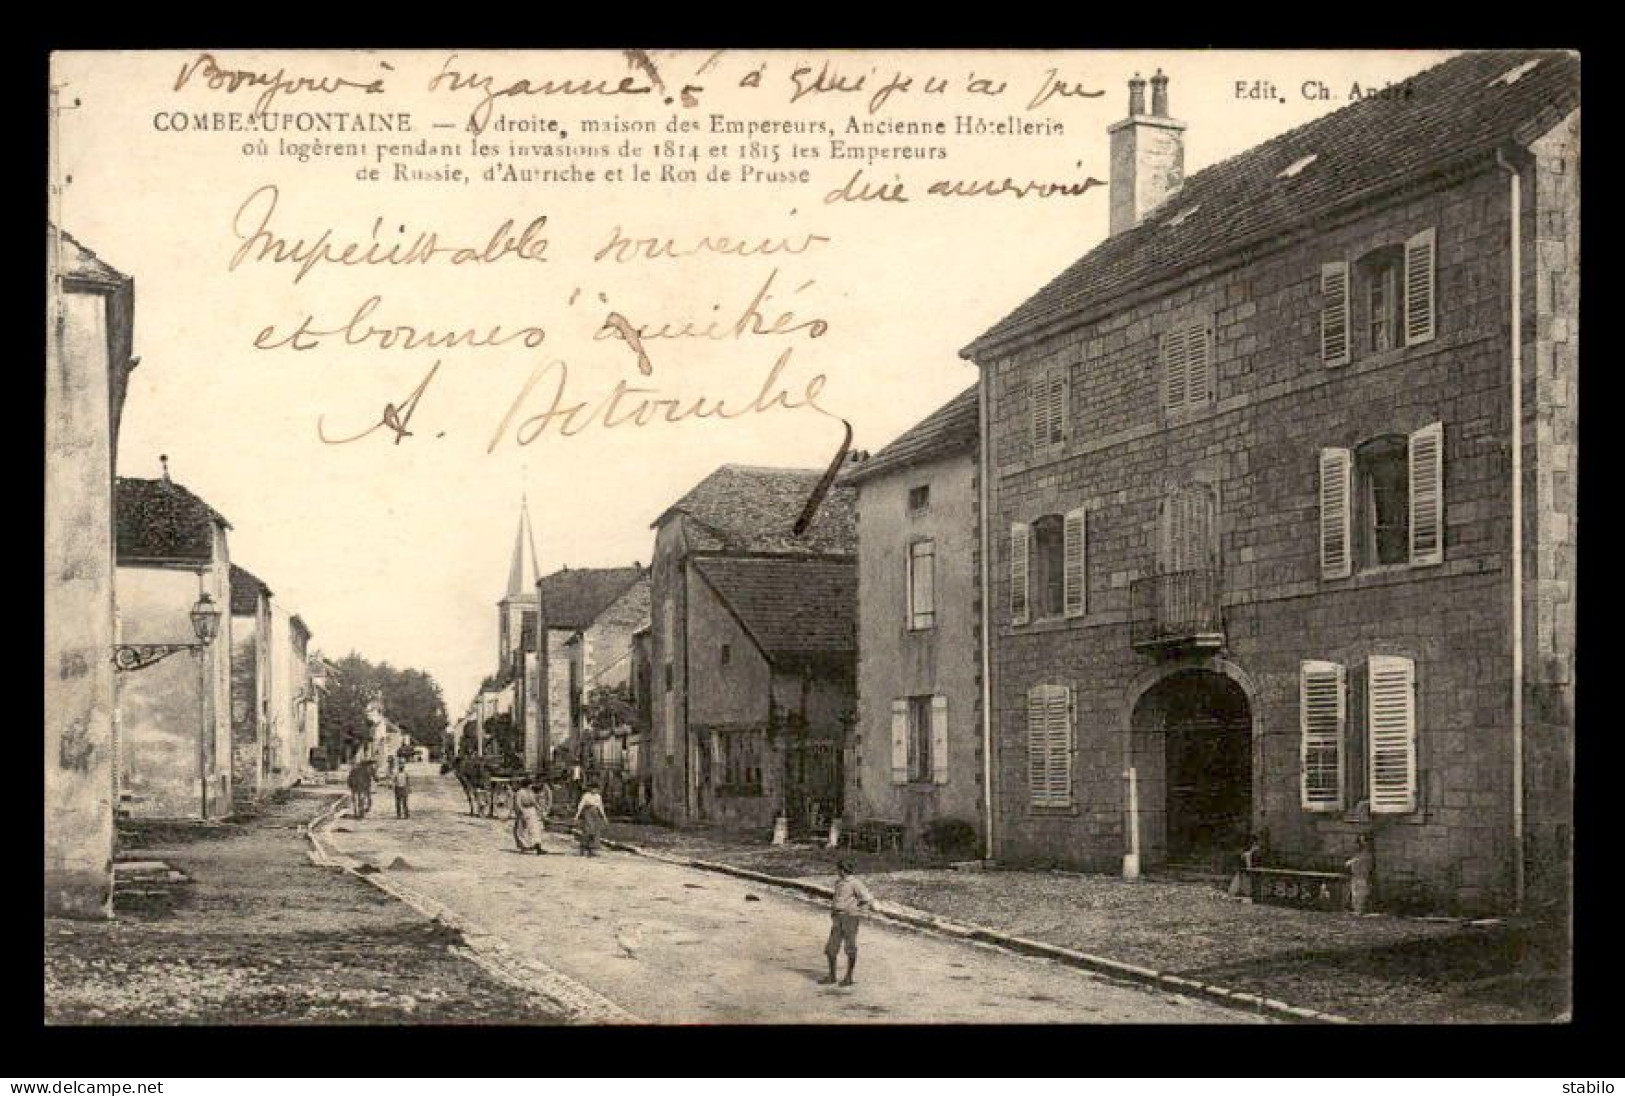 Bonjour à Suzanne ! à qui je n'ai pu
Edit. Ch. André
COMBEAUFONTAINE — A droite, maison des Empereurs, Ancienne Hôtellerie
où logèrent pendant les invasions de 1814 et 1815 les Empereurs
de Russie, d'Autriche et le Roi de Prusse
dire au revoir
souvenir
et bonnes amitiés
A.
www.delcampe.net
stabilo